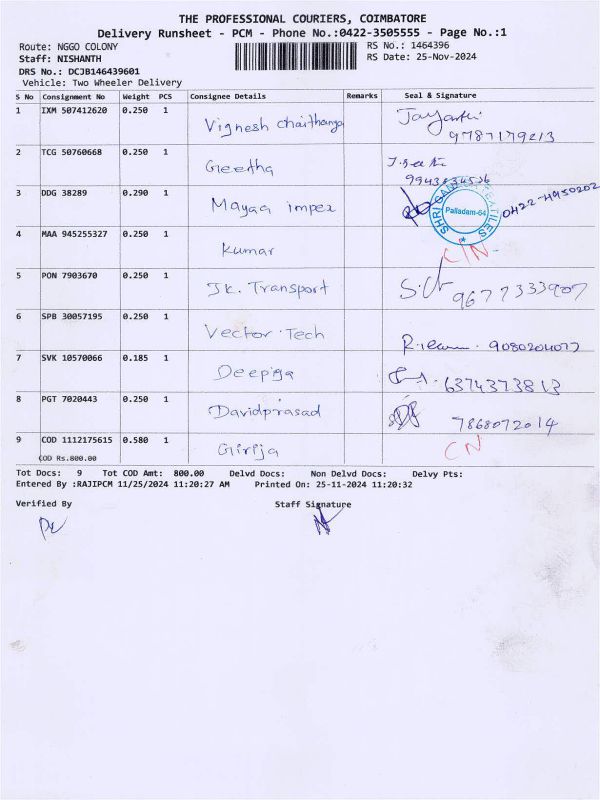 THE PROFESSIONAL COURIERS, COIMBATORE
Delivery Runsheet - PCM - Phone No.:0422-3505555 - Page No.:1
Route: NGGO COLONY RS No.: 1464396
Staff: NISHANTH RS Date: 25-Nov-2024
DRS No.: DCJB146439601
Vehicle: Two Wheeler Delivery
S No Consignment No Weight PCS Consignee Details Remarks Seal & Signature
1 IXM 507412620 0.250 1 Vignesh Chaithanya Jayanthi 9787179213
2 TCG 50760668 0.250 1 Geetha
3 DDG 38289 0.290 1 Mayaa impex Palladam-64
4 MAA 945255327 0.250 1 Kumar C/N
5 PON 7903670 0.250 1 Jk. Transport 9677333907
6 SPB 30057195 0.250 1 Vector Tech 9080204077
7 SVK 10570066 0.185 1 Deepiga 6374373813
8 PGT 7020443 0.250 1 Davidprasad 7868072014
9 COD 1112175615 0.580 1 Girija CN
COD Rs.800.00
Tot Docs: 9 Tot COD Amt: 800.00 Delvd Docs: Non Delvd Docs: Delvy Pts:
Entered By :RAJIPCM 11/25/2024 11:20:27 AM Printed On: 25-11-2024 11:20:32
Verified By Staff Signature